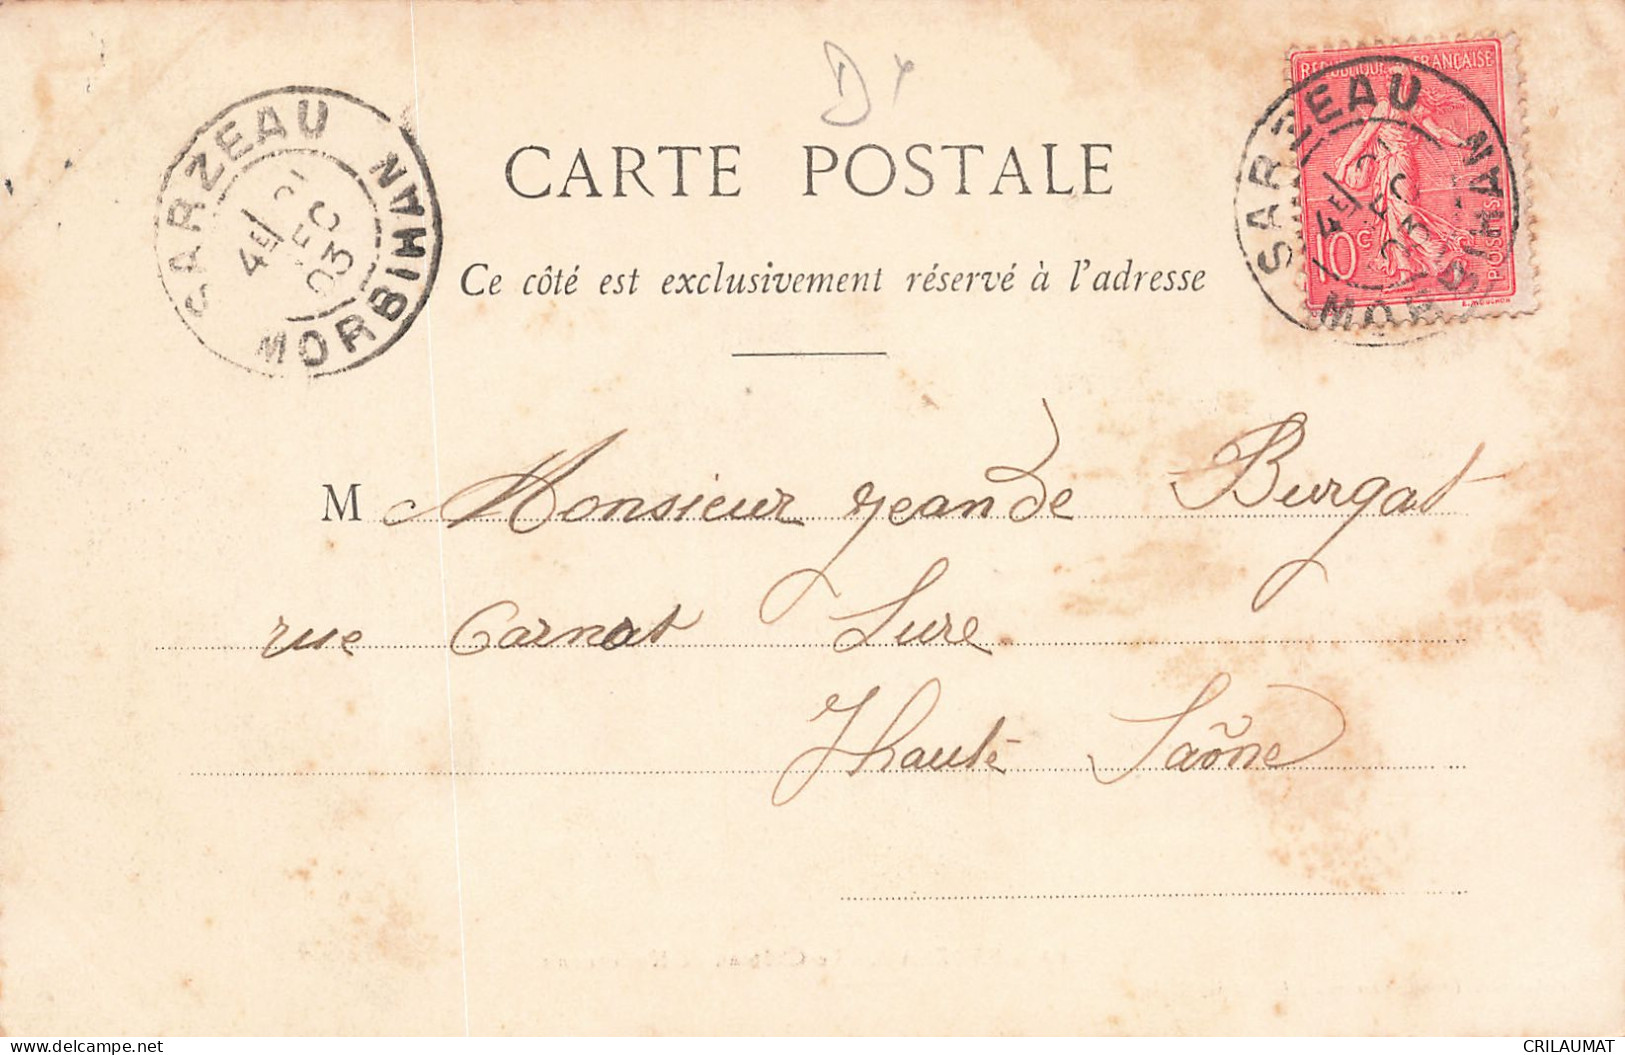 D
CARTE POSTALE
Ce côté est exclusivement réservé à l'adresse
SARZEAU
MORBIHAN
4E
03
RÉPUBLIQUE FRANÇAISE
10c
POSTES
SARZEAU
MORBIHAN
4E
03
M Monsieur Jean de Burgat
rue Carnot Lure
Haute Saône
delcampe.net
CRILAUMAT